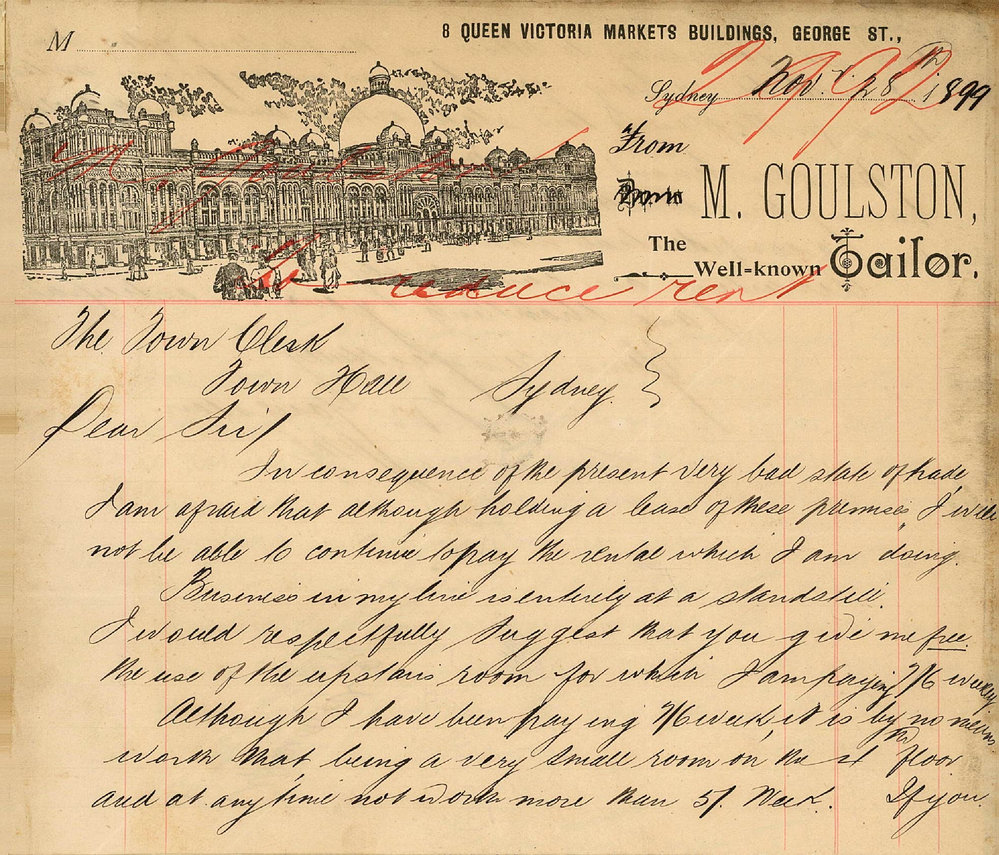 M
8 QUEEN VICTORIA MARKETS BUILDINGS, GEORGE ST.,
Sydney Nov. 28th 1899
From
M. GOULSTON,
The Well-known Tailor.
to reduce rent
The Town Clerk
Town Hall Sydney
Dear Sir/
In consequence of the present very bad state of trade
I am afraid that although holding a lease of these premises, I will
not be able to continue to pay the rental which I am doing.
Business in my line is entirely at a standstill.
I would respectfully suggest that you give me free
the use of the upstairs room for which I am paying 7/6 weekly.
Although I have been paying 7/6 week, it is by no means
worth that, being a very small room on the floor
and at any time not worth more than 5/ Week. If you